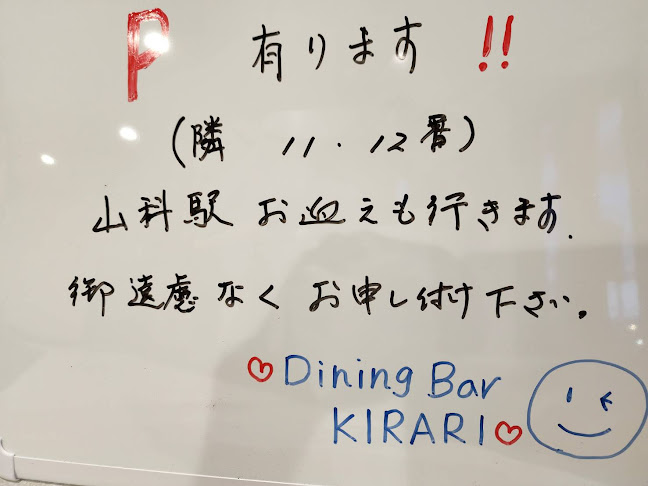 P 有ります !!
(隣 11・12番)
山科駅 お迎えも行きます.
御遠慮なく お申し付け下さい。
♡Dining Bar
KIRARI♡